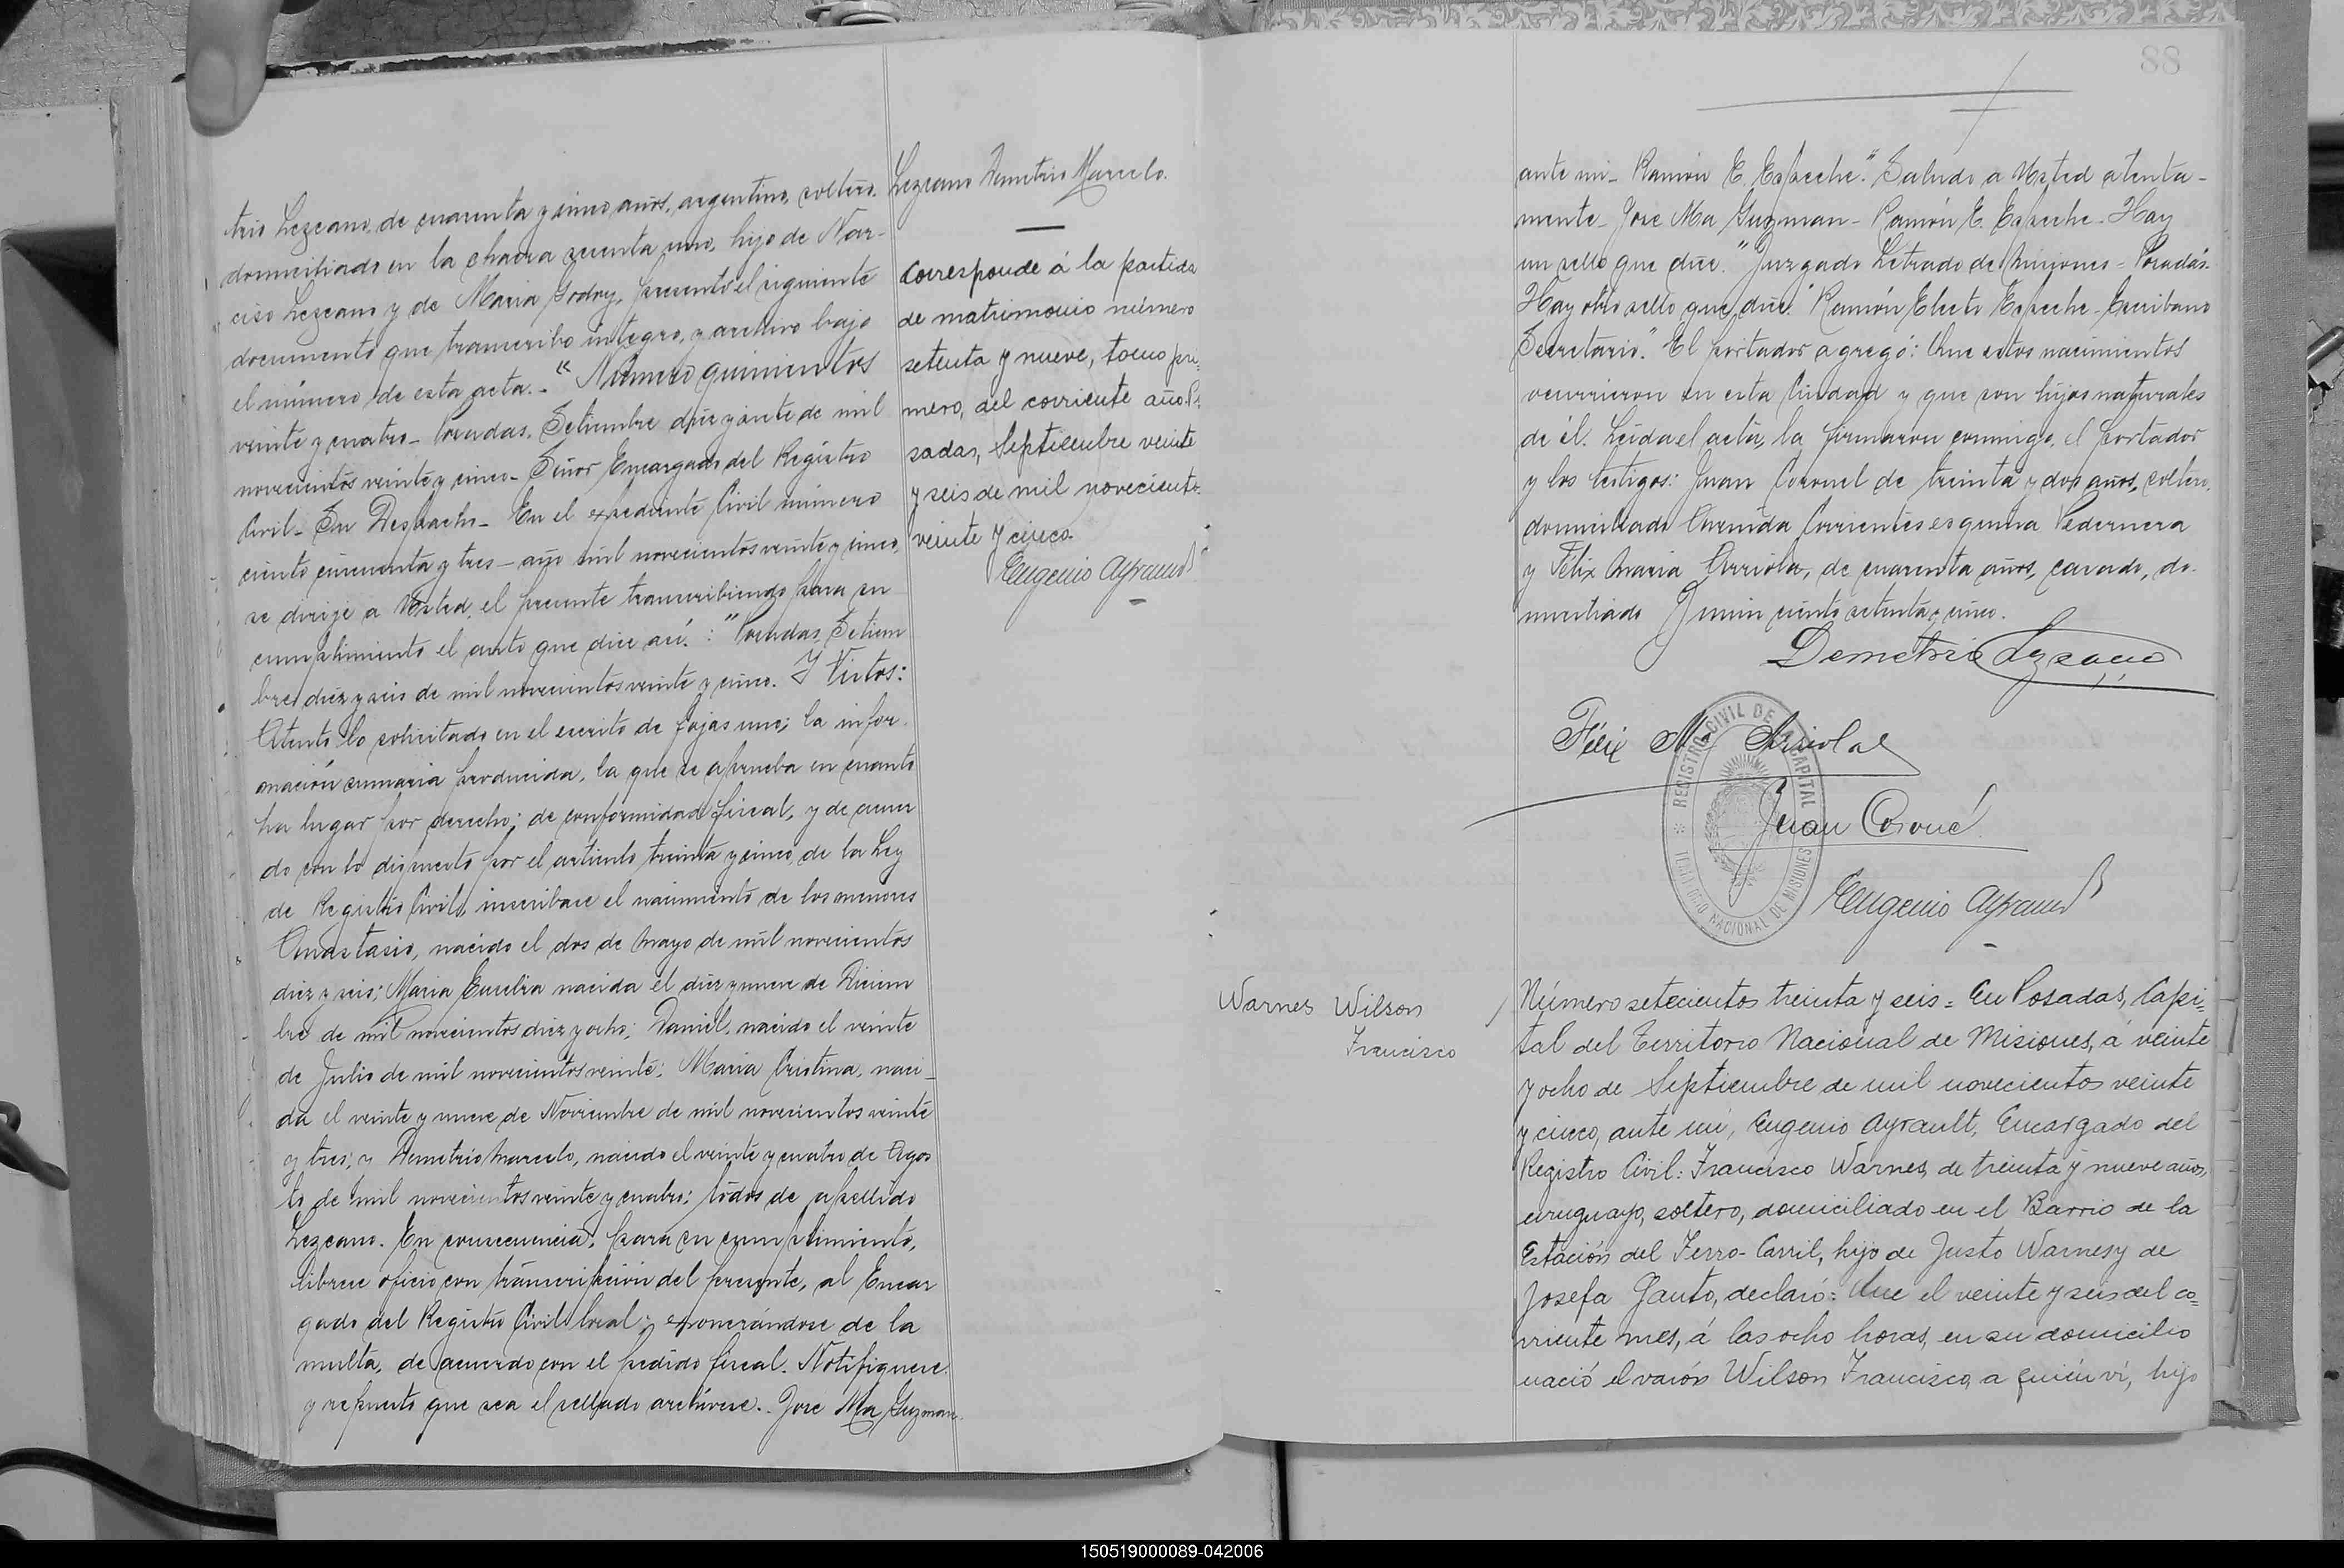 trio Lezcano, de cuarenta y cinco años, argentino, soltero,
domiciliado en la chacra sesenta uno, hijo de Nar-
ciso Lezcano y de Maria Godoy, presentó el siguiente
documento que transcribo íntegro, y archivo bajo
el número de esta acta.- "Número quinientos
veinte y cuatro- Posadas, Setiembre diez y siete de mil
novecientos veinte y cinco- Señor Encargado del Registro
Civil- Su Despacho- En el expediente Civil número
ciento cincuenta y tres- año mil novecientos veinte y cinco,
se dirije a Usted el presente transcribiendo para su
cumplimiento el auto que dice así: "Posadas, Setiem
bre diez y seis de mil novecientos veinte y cinco. Y Vistos:
Atento lo solicitado en el escrito de fojas uno; la infor-
mación sumaria producida, la que se aprueba en cuanto
ha lugar por derecho; de conformidad fiscal, y de acuer
do con lo dispuesto por el artículo treinta y cinco, de la Ley
de Registro Civil, inscribase el nacimiento de los menores
Anastasio, nacido el dos de Mayo de mil novecientos
diez y seis; Maria Eusebia nacida el diez y nueve de Diciem
bre de mil novecientos diez y ocho; Daniel, nacido el veinte
de Julio de mil novecientos veinte; Maria Cristina, naci-
da el veinte y nueve de Noviembre de mil novecientos veinte
y tres; y Demetrio Marcelo, nacido el veinte y cuatro de Agos
to de mil novecientos veinte y cuatro; todos de apellido
Lezcano. En consecuencia, para su cumplimiento,
librese oficio con transcripción del presente, al Encar
gado del Registro Civil local; exonerándose de la
multa, de acuerdo con el pedido fiscal. Notifiquese
y repuesto que sea el sellado archívese.- Jose Ma Guzman
Lezcano Demetrio Marcelo.
Corresponde á la partida
de matrimonio número
setenta y nueve, tomo pri-
mero, del corriente año. Po-
sadas, Septiembre veinte
y seis de mil novecientos
veinte y cinco.
Eugenio Ayrault
88
ante mi- Ramón E. Espeche." Saludo a Usted atenta-
mente- Jose Ma Guzman- Ramón E. Espeche- Hay
un sello que dice: "Juzgado Letrado de Misiones- Posadas.
Hay otro sello que dice: "Ramón Electo Espeche- Escribano
Secretario." El portador agregó: Que estos nacimientos
ocurrieron en esta Ciudad y que son hijos naturales
de él. Leida el acta, la firmaron conmigo, el portador
y los testigos: Juan Coronel de treinta y dos años, soltero,
domiciliado Avenida Corrientes esquina Pedernera
y Félix Maria Arriola, de cuarenta años, casado, do-
miciliado Junin ciento setenta y cinco.
Demetrio Lezcano
Félix M. Arriola
REGISTRO CIVIL DE LA CAPITAL
TERRITORIO NACIONAL DE MISIONES
Juan Coroné
Eugenio Ayrault
Warnes Wilson
Francisco
Número setecientos treinta y seis = En Posadas, Capi-
tal del Territorio Nacional de Misiones, á veinte
y ocho de Septiembre de mil novecientos veinte
y cinco, ante mi, Eugenio Ayrault, Encargado del
Registro Civil: Francisco Warnes, de treinta y nueve años,
uruguayo, soltero, domiciliado en el Barrio de la
Estación del Ferro-Carril, hijo de Justo Warnes y de
Josefa Gauto, declaró: Que el veinte y seis del co-
rriente mes, á las ocho horas, en su domicilio
nació el varón Wilson Francisco, a quién ví, hijo
150519000089-042006